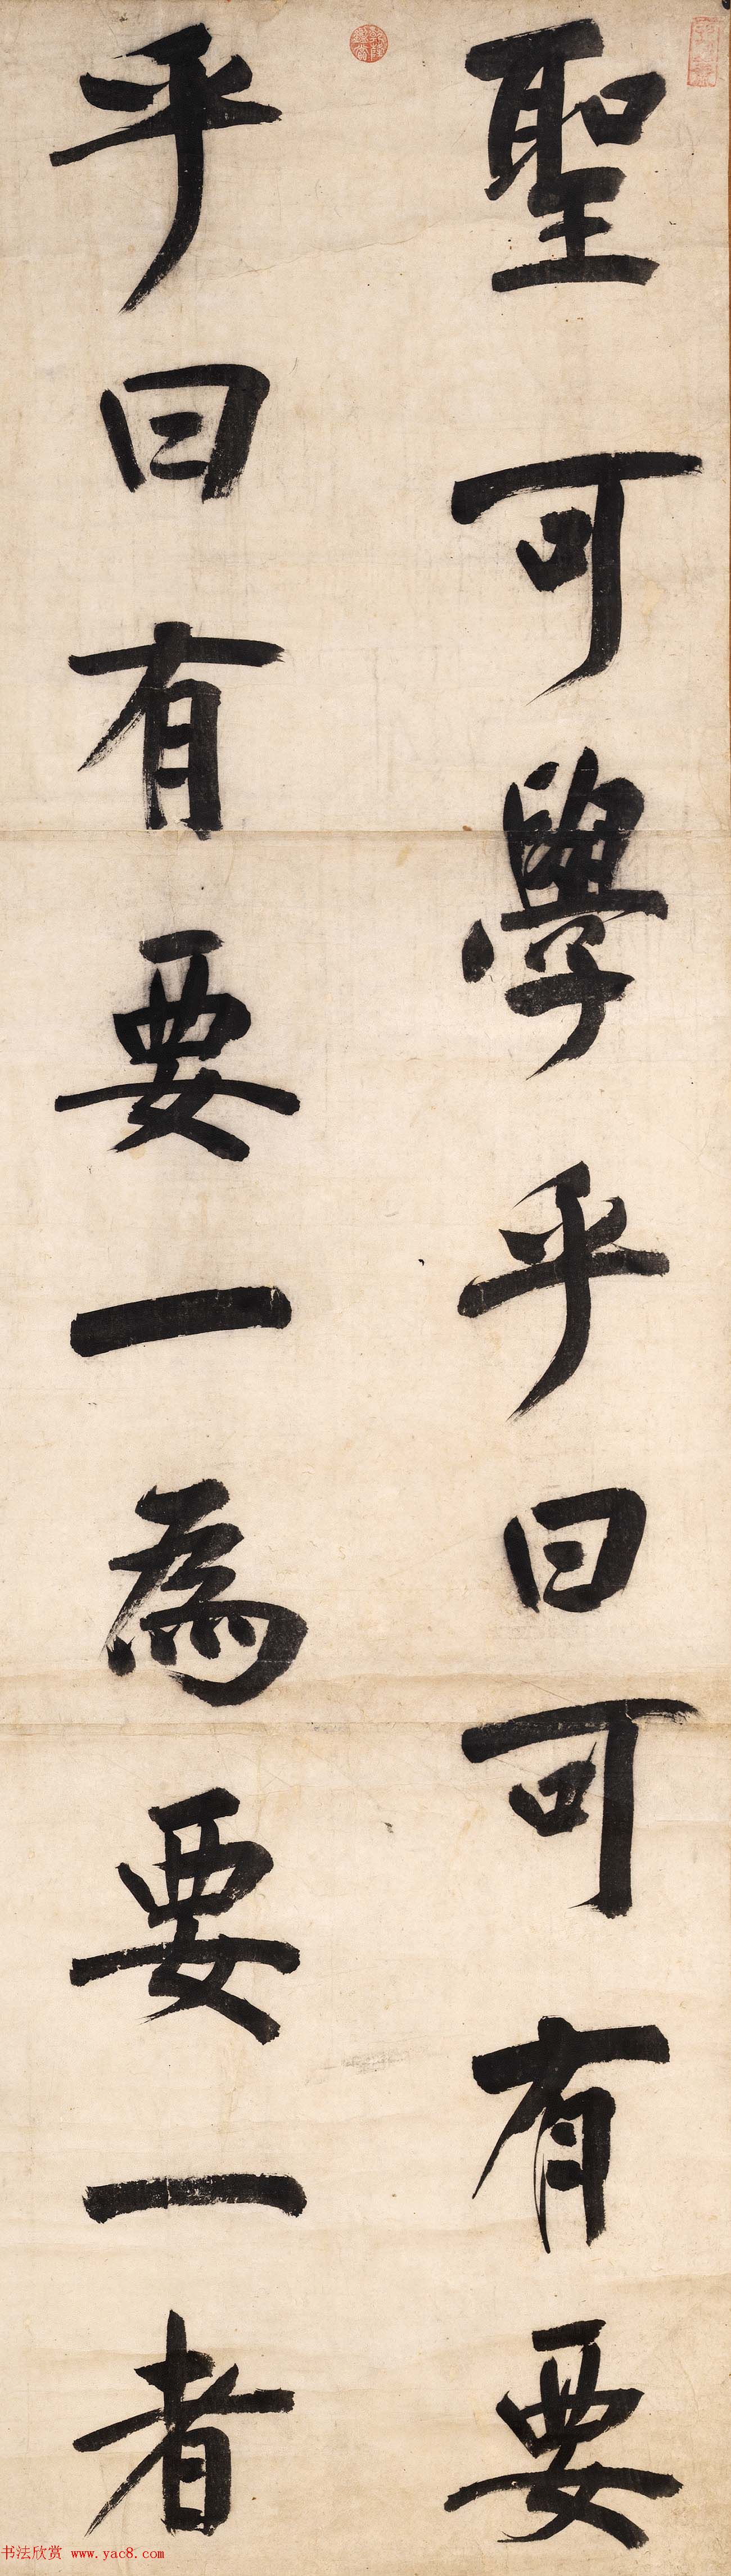 聖可學乎曰可有要
乎曰有要一為要一者
书法欣赏 www.yac8.com